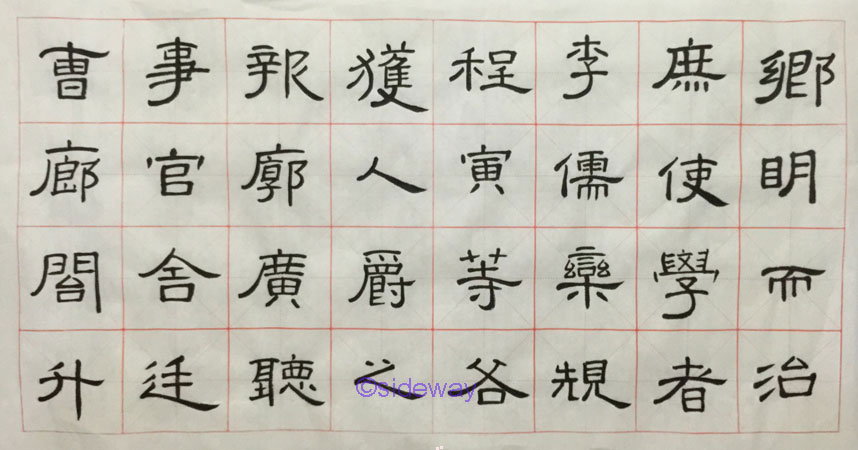 鄉明而治
庶使學者
李儒欒規
程寅等各
獲人爵之
報廓廣聽
事官舍廷
曹廊閤升
©sideway